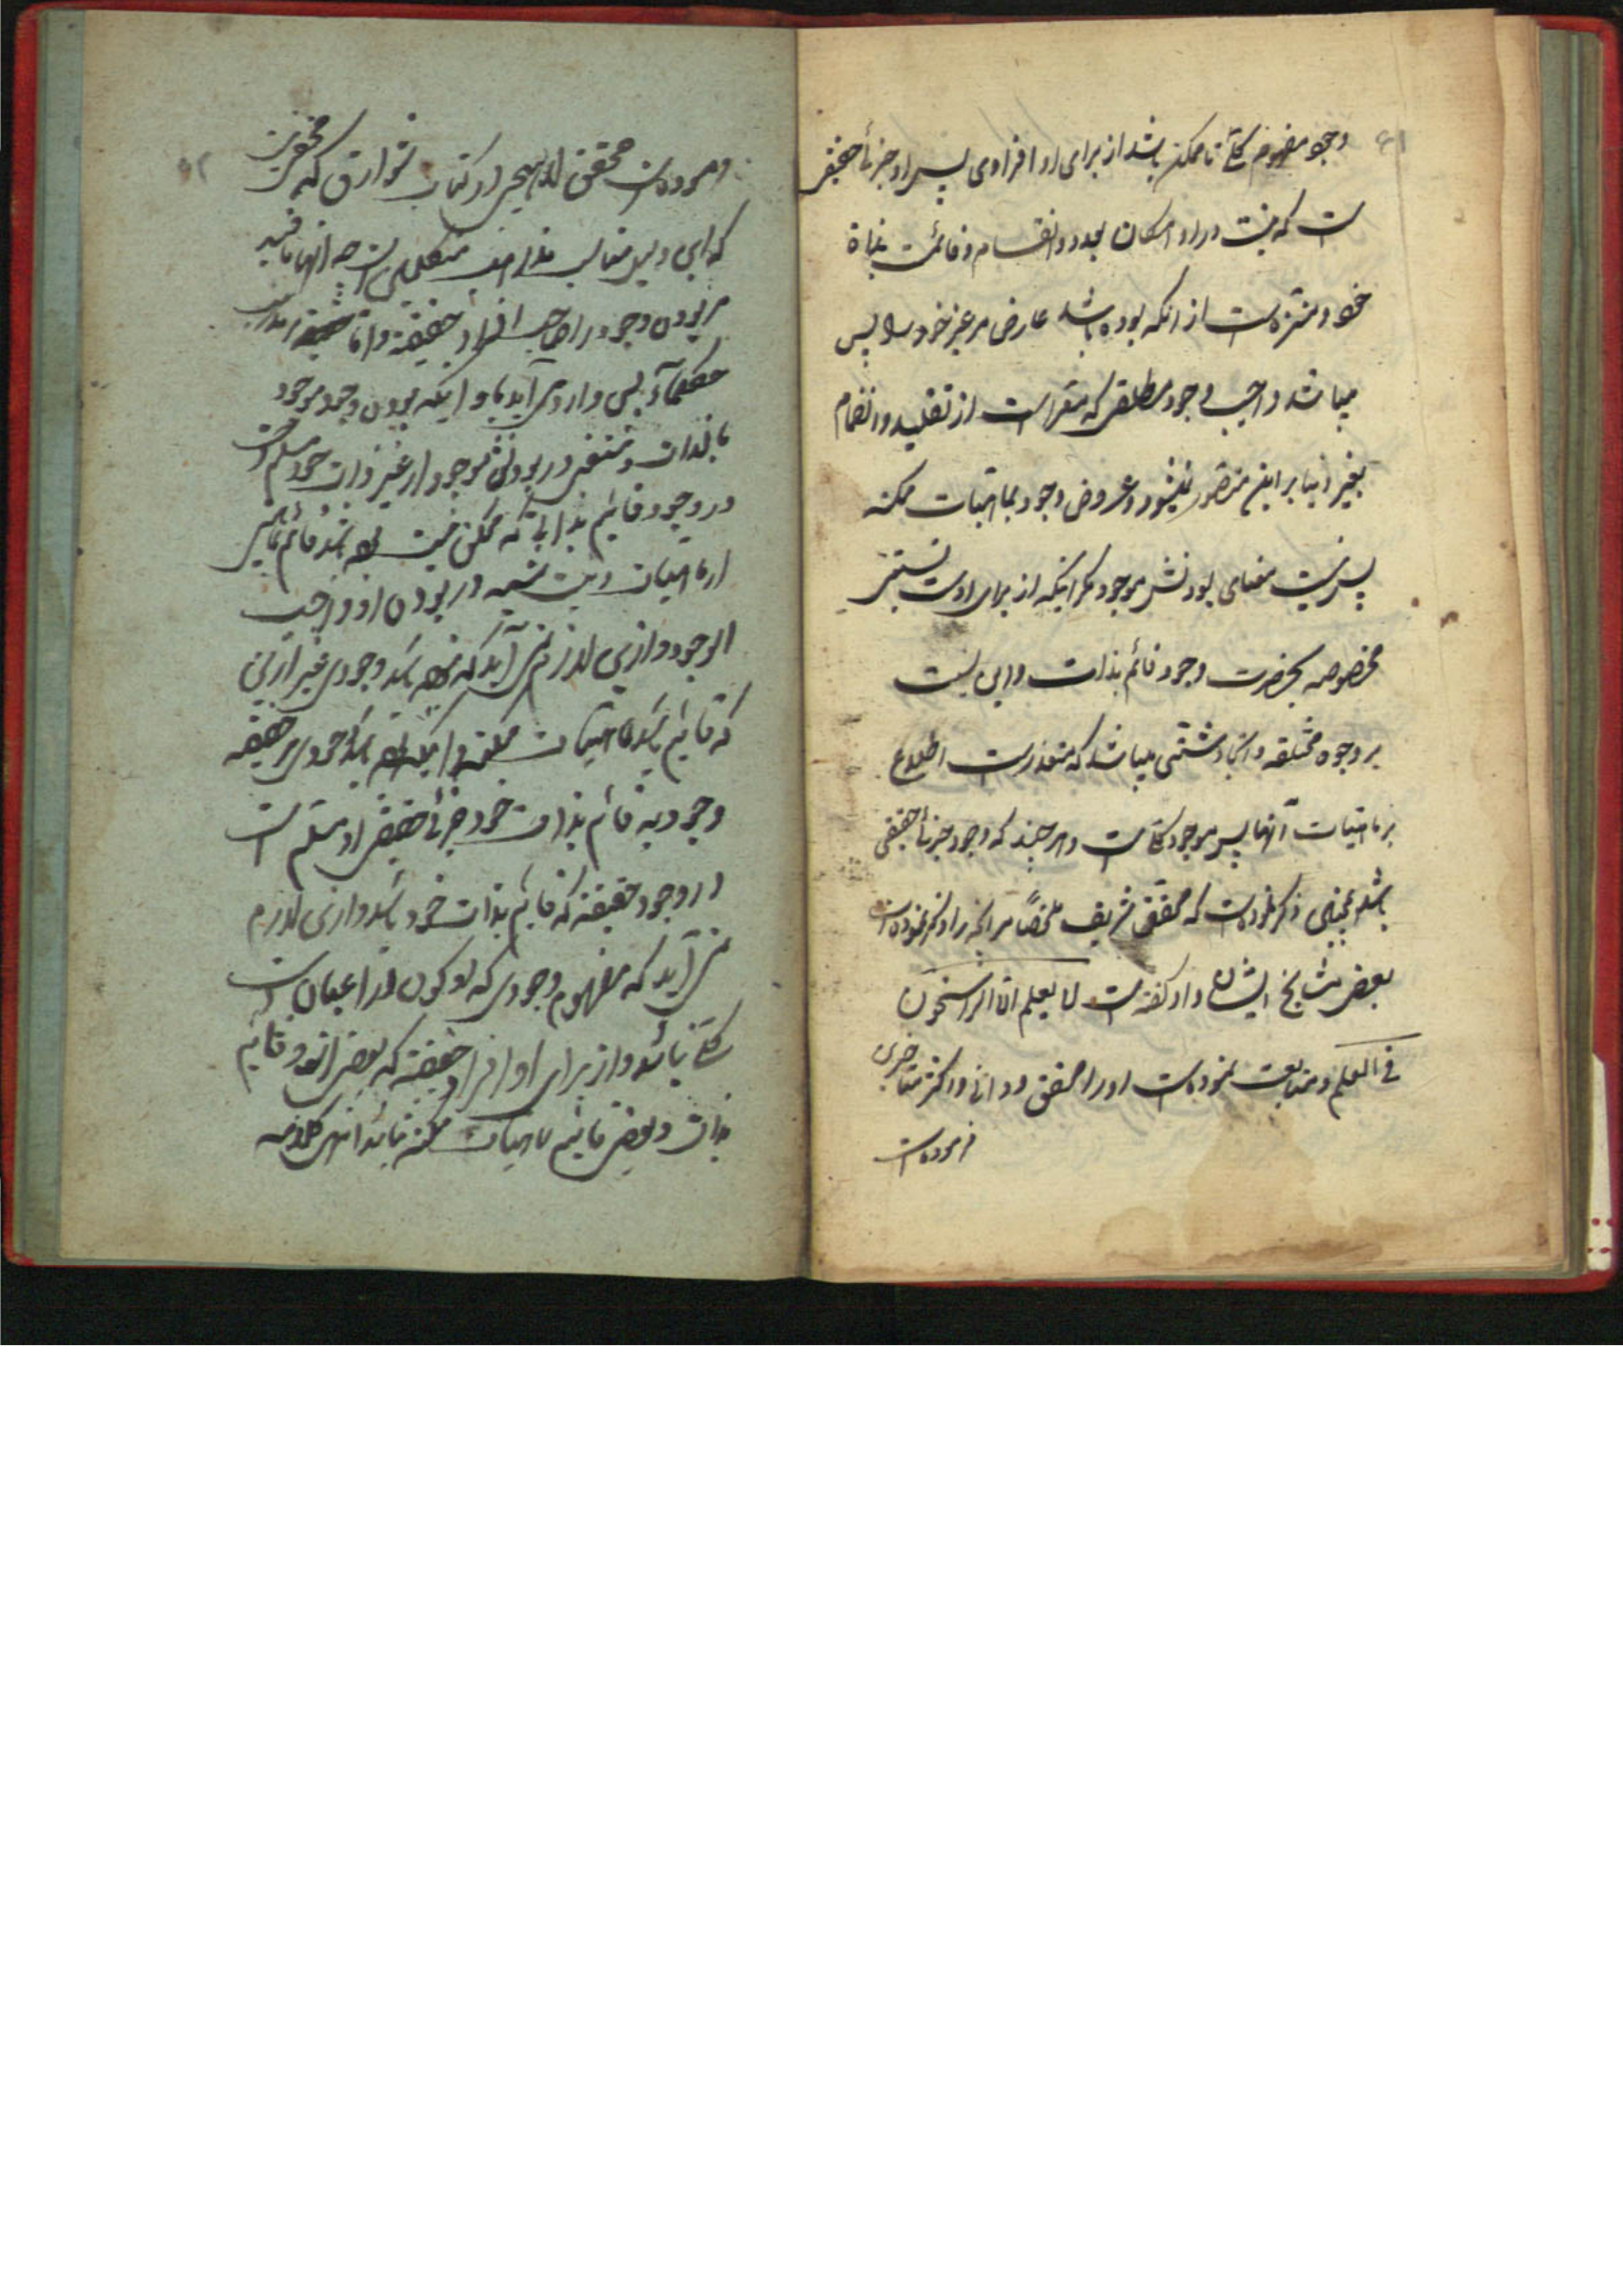 وجود مفهوم کلی تا ممکن باشد از برای او افرادی پس او جزئی حقیقی
است که نیست در او امکان تعدد و انقسام و قائمست بذات
خود و منزه است از آنکه بوده باشد عارض مر غیر خود را پس
میباشد واجب وجود مطلق که معراست از تقلید و انضمام
بغیر و بنا بر این متصور نمیشود عروض وجود بماهیات ممکنه
پس نیست معنای بودنش موجود مگر اینکه از برای اوست نسبتی
مخصوصه بحضرت وجود قائم بذات و این نسبت
بر وجوه مختلفه و انحاء شتی میباشد که متعذر است اطلاع
بر ماهیات آنها پس موجود کلی است و هر چند که وجود جزئی حقیقی
باشد چنین ذکر نموده است که محقق شریف ملخصا مر آنچه را ذکر نموده است
بعض مشایخ ایشان و او گفته است لا یعلم الا الراسخون
فی العلم و متابعت نموده است او را محقق دوانی و اکثر متأخرین
فرموده است
و فرموده است محقق لاهیجی در کتاب شوارق که مخفی نیست
که این دلیل مناسب مذاهب متکلمین است چه آنها قائلند
مر بودن وجود را صاحب افراد حقیقة و اما
حکماء پس وارد می آید بر او اینکه بودن وجود موجود
بالذات و مستغنی در بودنش موجود از غیر ذات خود مسلم است
در وجود قائم بذاتی که ممکن نیست بوده باشد قائم بغیر
از ماهیات و نیست شبهه در بودن او واجب
الوجود و از این لازم نمی آید که بوده باشد وجودی غیر از این
که قائم باشد بماهیات ممکنه و اینکه بوده باشد وجودی حقیقه
وجودیه قائم بذات خود جزئی حقیقی او مسلم است
در وجود حقیقة که قائم بذات خود باشد و از این لازم
نمی آید که مفهوم وجودی که او کون در اعیان است
کلی باشد و از برای او افراد حقیقة که بعض از او قائم
بذات و بعض قائم بماهیات ممکنه باشد انتهی کلامه